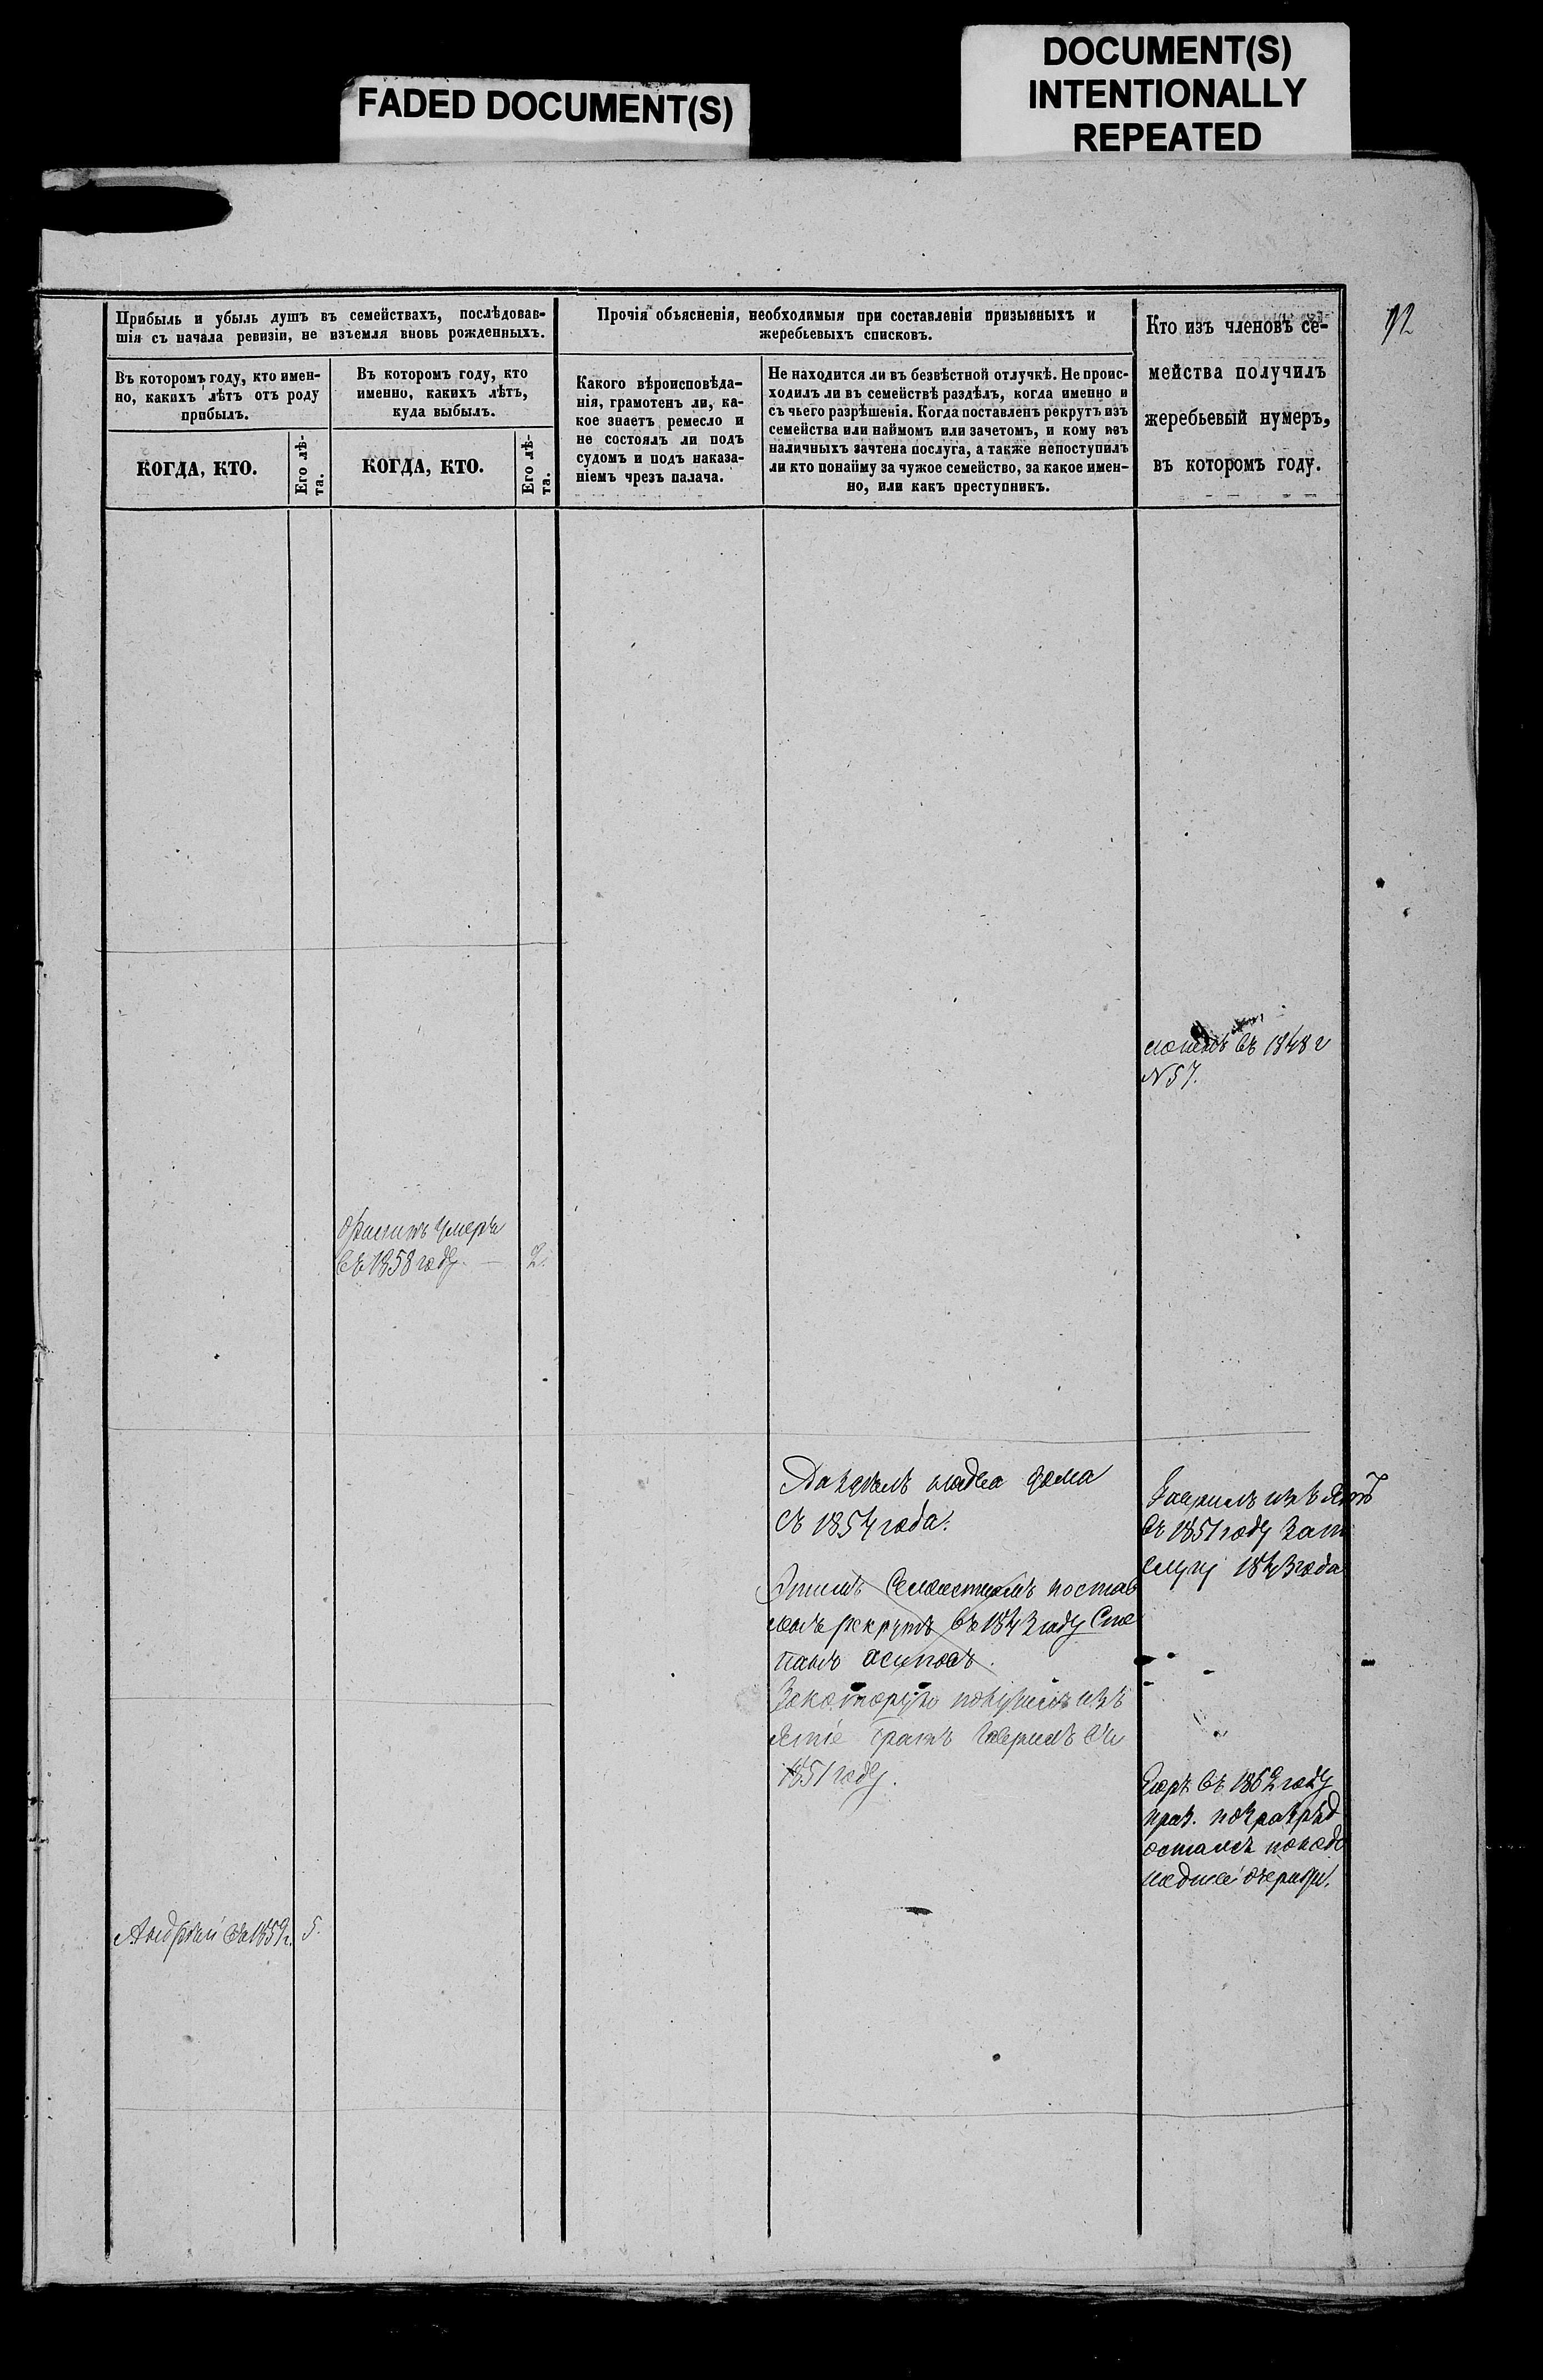 FADED DOCUMENT(S)
DOCUMENT(S)
INTENTIONALLY
REPEATED
Прибыль и убыль душъ въ семействахъ, послѣдовав-
шія съ начала ревизіи, не изъемля вновь рожденныхъ.
Въ которомъ году, кто имен-
но, какихъ лѣтъ отъ роду
прибылъ.
КОГДА, КТО.
Его лѣ-
та.
Въ которомъ году, кто
именно, какихъ лѣтъ,
куда выбылъ.
КОГДА, КТО.
Его лѣ-
та.
Прочія объясненія, необходимыя при составленіи призывныхъ и
жеребьевыхъ списковъ.
Какого вѣроисповѣда-
нія, грамотенъ ли, ка-
кое знаетъ ремесло и
не состоялъ ли подъ
судомъ и подъ наказа-
ніемъ чрезъ палача.
Не находится ли въ безвѣстной отлучкѣ. Не проис-
ходилъ ли въ семействѣ раздѣлъ, когда именно и
съ чьего разрѣшенія. Когда поставленъ рекрутъ изъ
семейства или наймомъ или зачетомъ, и кому изъ
наличныхъ зачтена послуга, а также непоступилъ
ли кто понайму за чужое семейство, за какое имен-
но, или какъ преступникъ.
Кто изъ членовъ се-
мейства получилъ
жеребьевый нумеръ,
въ которомъ году.
12
въ 1848 г
N 57.
умеръ
въ 1858 году 2.
дома
съ 1854 года.
Семействомъ постав
рекрутъ въ 1843 году Сте
панъ Осиповъ.
братъ Гаврилъ въ
1851 году.
Гаврилъ
въ 1851 году за
слугу 1843 года
въ 1862 году
остался
очереди.
Андрей въ 1859 г. 5.